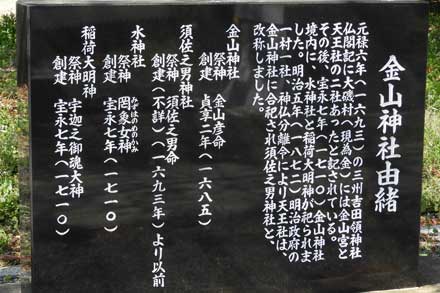 金山神社由緒
元禄六年(一六九三)の三州吉田領神社
仏閣記に大磯村(現為金)には金山宮と
天王社の二社あったと記されている。
その後、宝永七年(一七一〇)金山神社
境内に、水神社と稲荷大明神が祀られま
した。明治五年(一八七二)明治政府の
一村一社、神仏分離令により天王社は、
金山神社に合祀され須佐之男神社と、
改称しました。
金山神社
祭神 金山彦命
創建 貞享二年(一六八五)
須佐之男神社
祭神 須佐之男命
創建(不詳)(一六九三年)より以前
水神社
祭神 罔象女神
みずはのめのかみ
創建 宝永七年(一七一〇)
稲荷大明神
祭神 宇迦之御魂大神
創建 宝永七年(一七一〇)